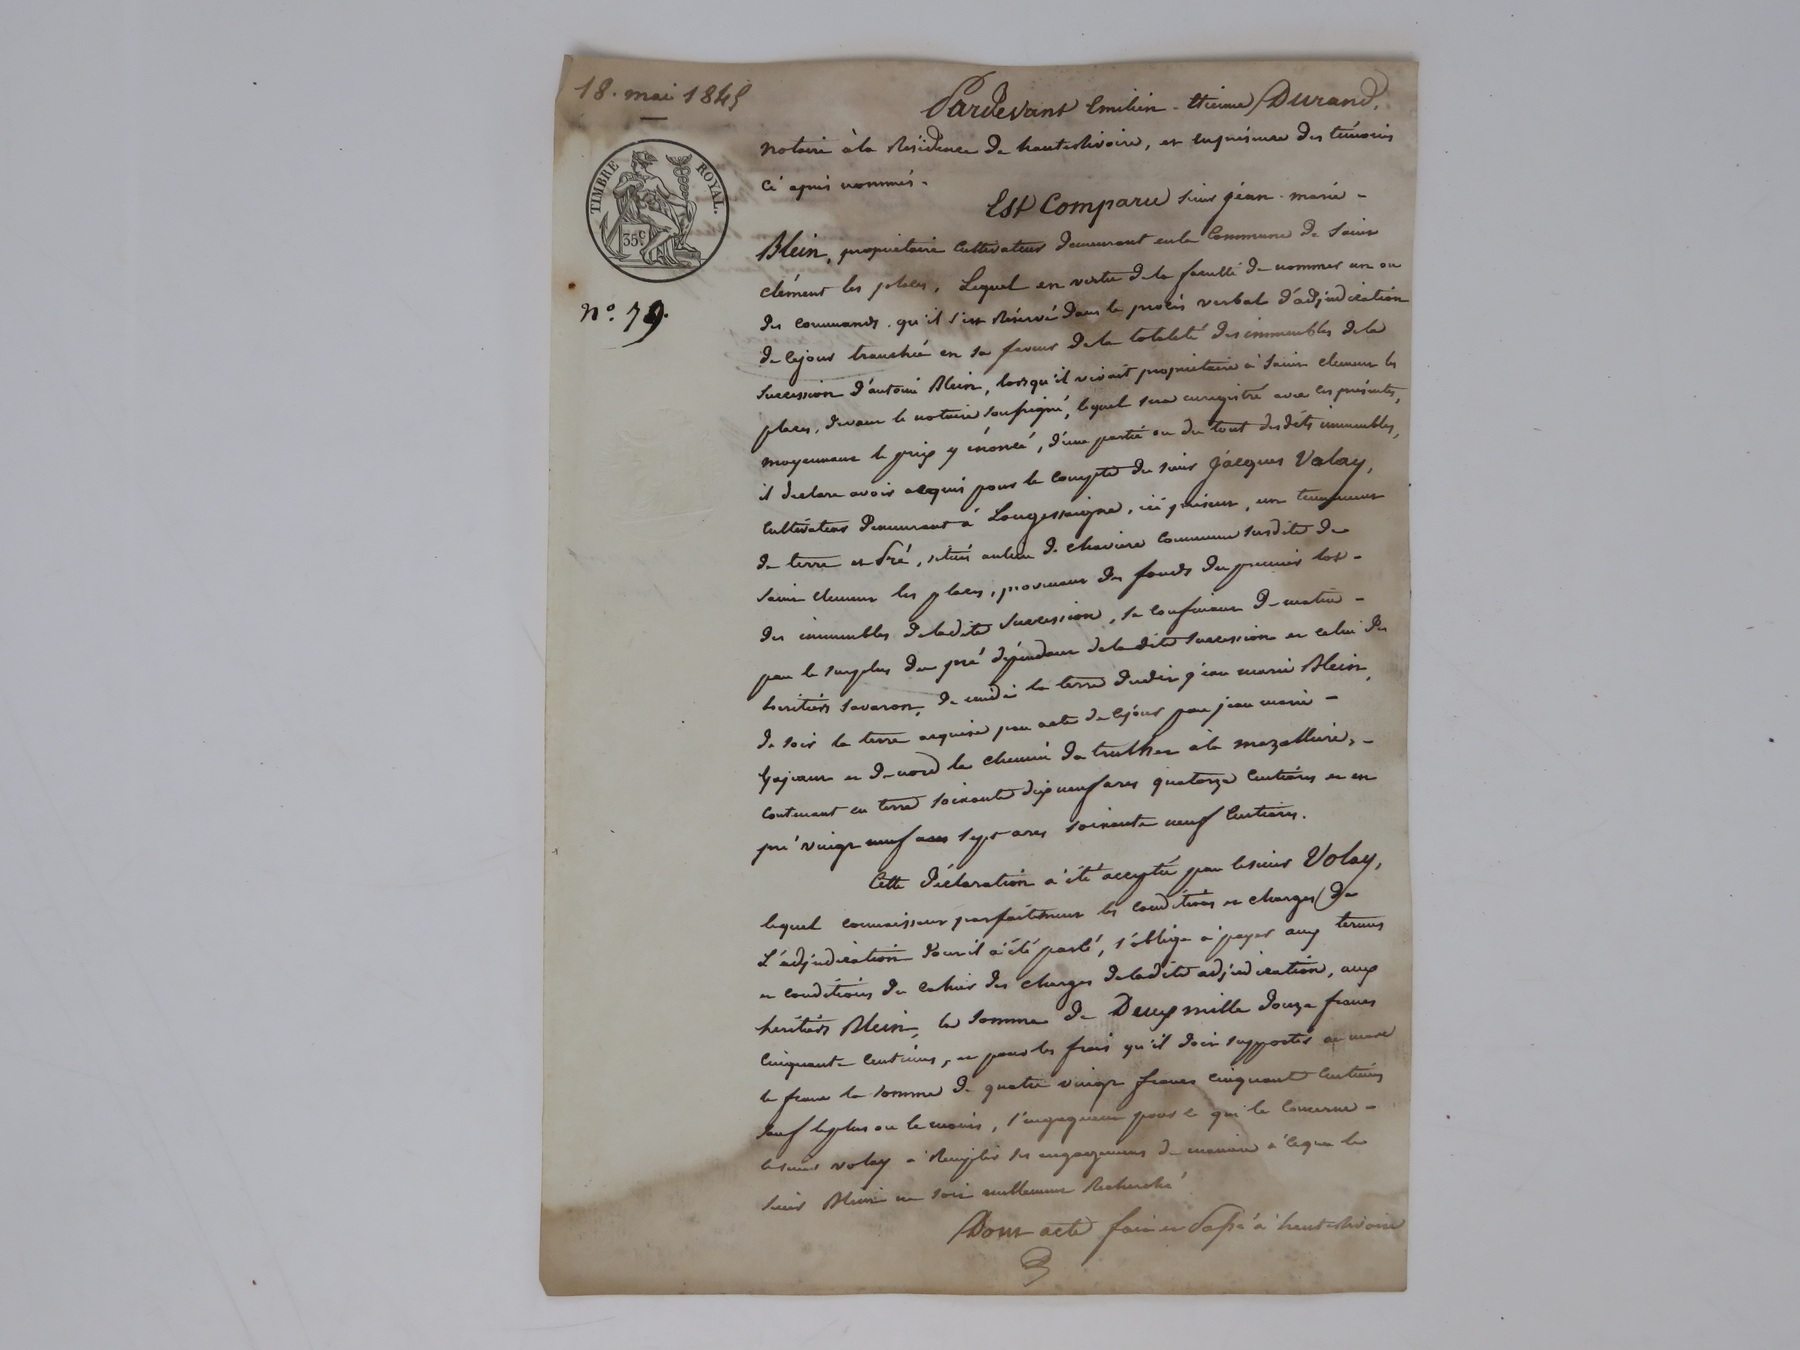 18. mai 1845
TIMBRE ROYAL.
35c
N.º 79.
Pardevant Emilien-Etienne Durand,
notaire à la Résidence de hauterivoire, et en présence des témoins
ci après nommés.
Est Comparu sieur jéan-marie-
Blein, propriétaire cultivateur demeurant en la Commune de Saint
clément les places, Lequel en vertu de la faculté de nommer un ou
des commands qu'il s'est Réservé dans le procès verbal d'adjudication
de cejour tranchée en sa faveur de la totalité des immeubles de la
succession d'antoine Blein, lorsqu'il vivait propriétaire à Saint clement les
places, devant le notaire soussigné, lequel sera enregistré avec les présentes,
moyennant le prix y énoncé, d'une partie ou du tout desdits immeubles,
il declare avoir acquis pour le compte du sieur Jacques Volay,
cultivateur demeurant à Longessaigne, ici présent, un tenement
de terre et Pré, situé au lieu de chaviere commune susdite de
Saint clement les places, provenant des fonds du premier lot-
des immeubles de ladite succession, se confinant de matin-
par le surplus du pré dépendant de ladite succession et celui des
héritiers Savaron, de midi la terre dudit jéan marie Blein,
de soir la terre acquise par acte de cejour par jean marie-
et de nord le chemin de à la mazalliere,-
contenant en terre soixante dix neuf ares quatorze centiares et en
pré vingt neuf ares sept ares soixante neuf centiares.
Cette déclaration a été acceptée par le sieur Volay,
lequel connaissant parfaitement les conditions et charges de
L'adjudication dont il a été parlé, s'oblige à payer aux termes
et conditions du cahier des charges de ladite adjudication, aux
héritiers Blein, la somme de Deux mille douze francs
cinquante centimes, et pour les frais qu'il doit supporter au marc
le franc la somme de quatre vingt francs cinquante centimes
sauf le plus ou le moins, s'engageant pour ce qui le concerne-
le sieur volay à Remplir ses engagements de maniere à ceque le
sieur Blein ne soit nullement Recherché
Dont acte fait et Passé à hauterivoire